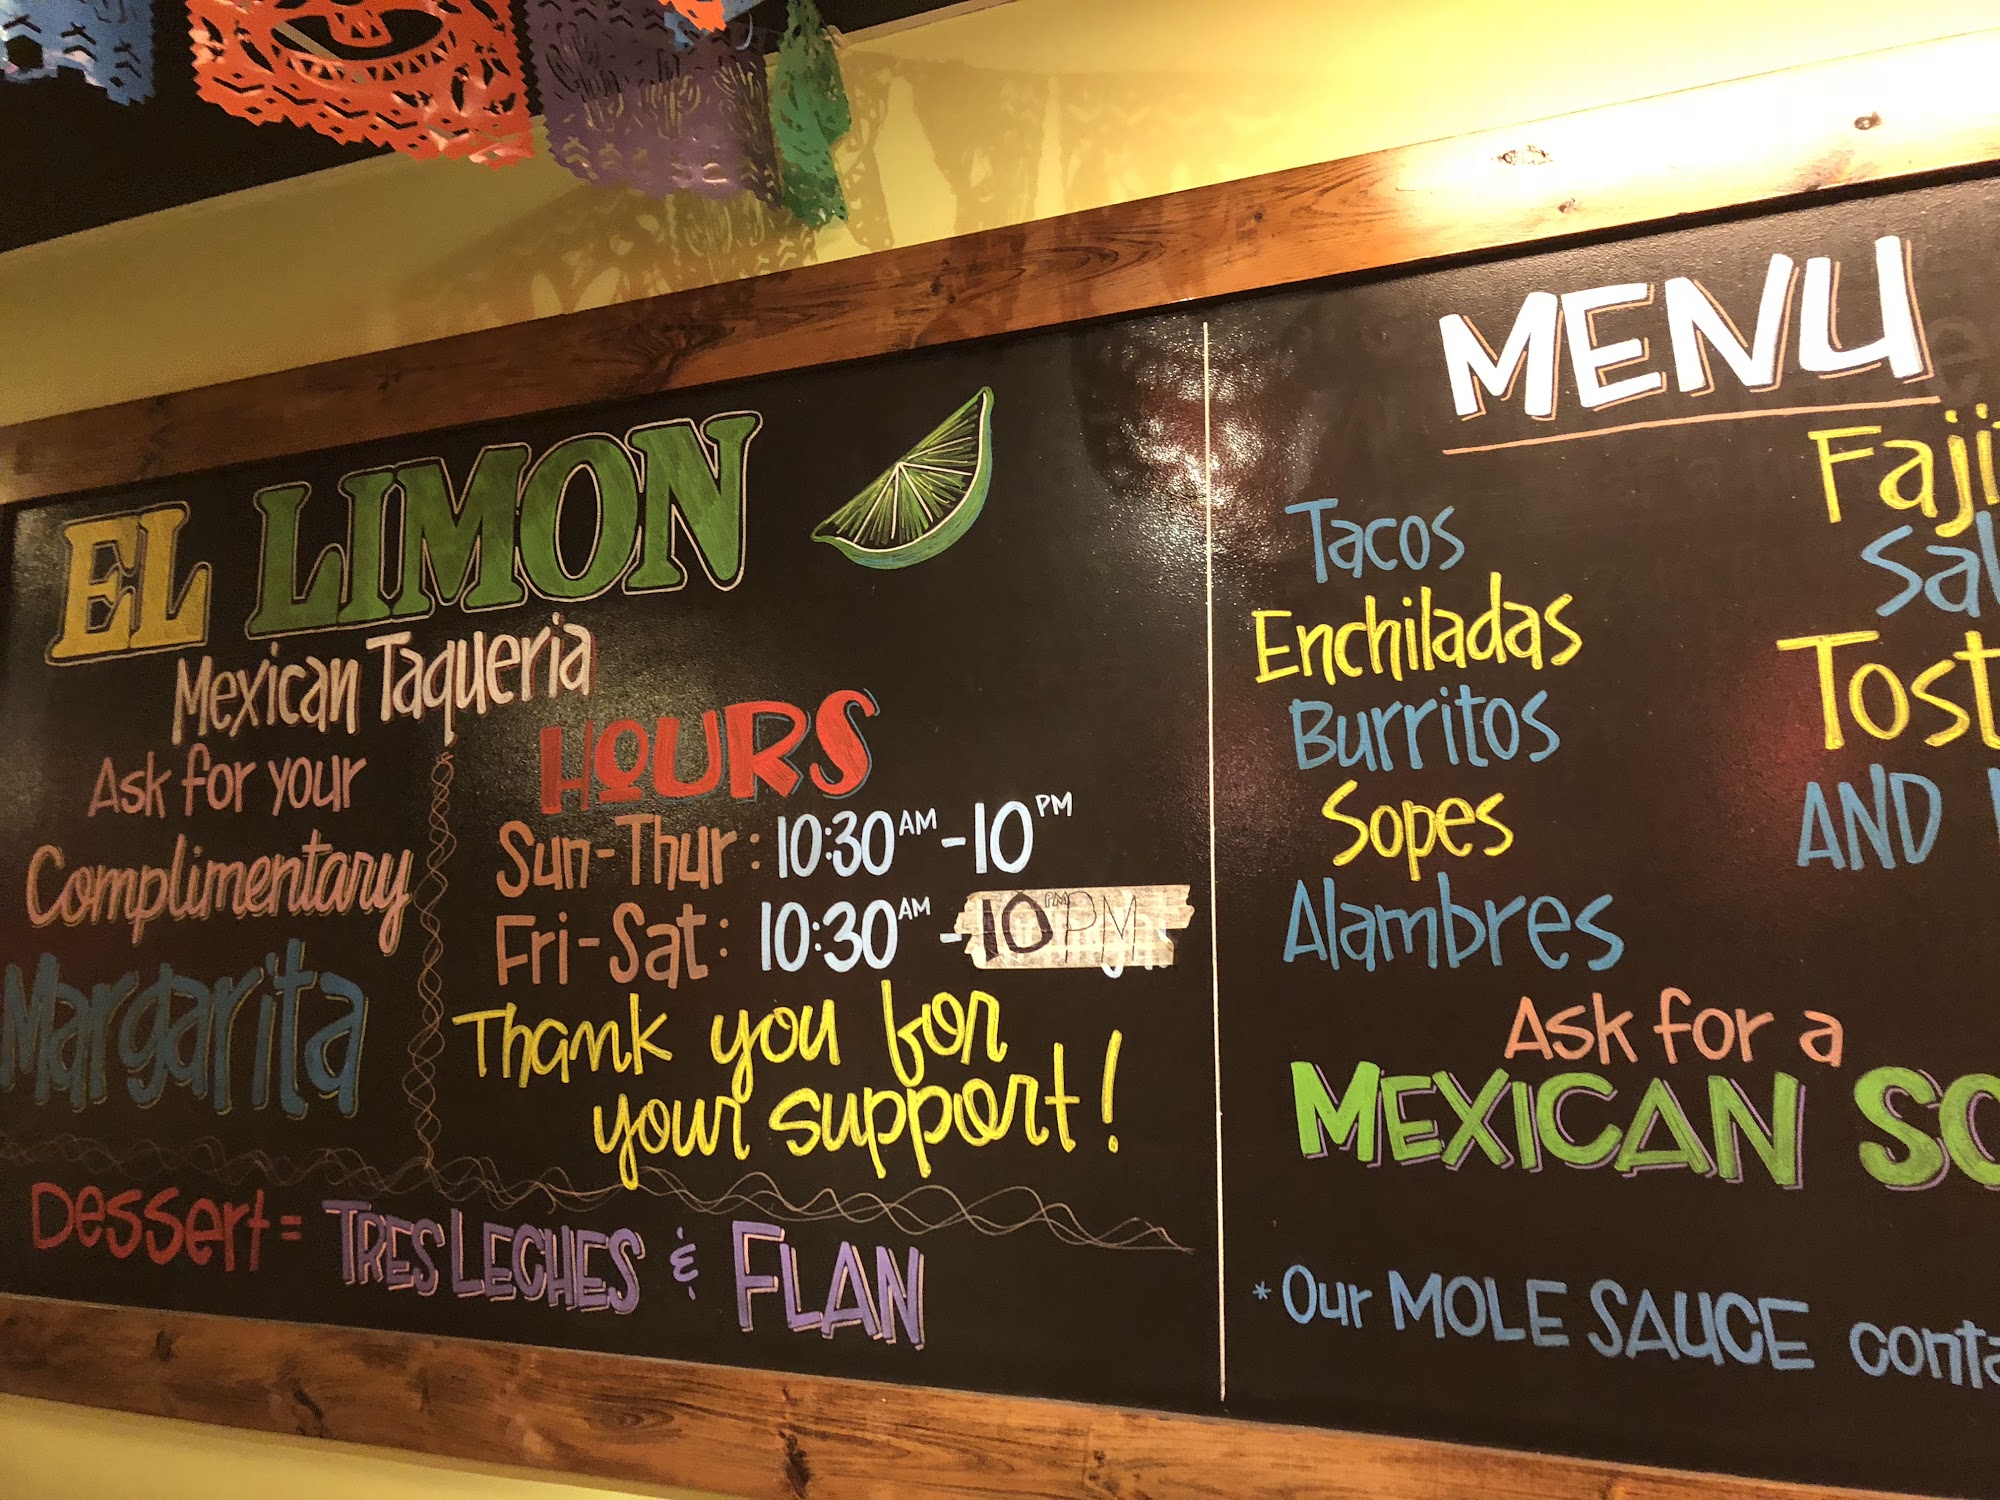 EL LIMON
Mexican Taqueria
Ask for your
Complimentary
Margarita
HOURS
Sun-Thur: 10:30AM-10PM
Fri-Sat: 10:30AM-10PM PM
Thank you for
your support!
Dessert = TRES LECHES & FLAN
MENU
Tacos
Enchiladas
Burritos
Sopes
Alambres
Faji
Sal
Tost
AND
Ask for a
MEXICAN SO
*Our MOLE SAUCE conta